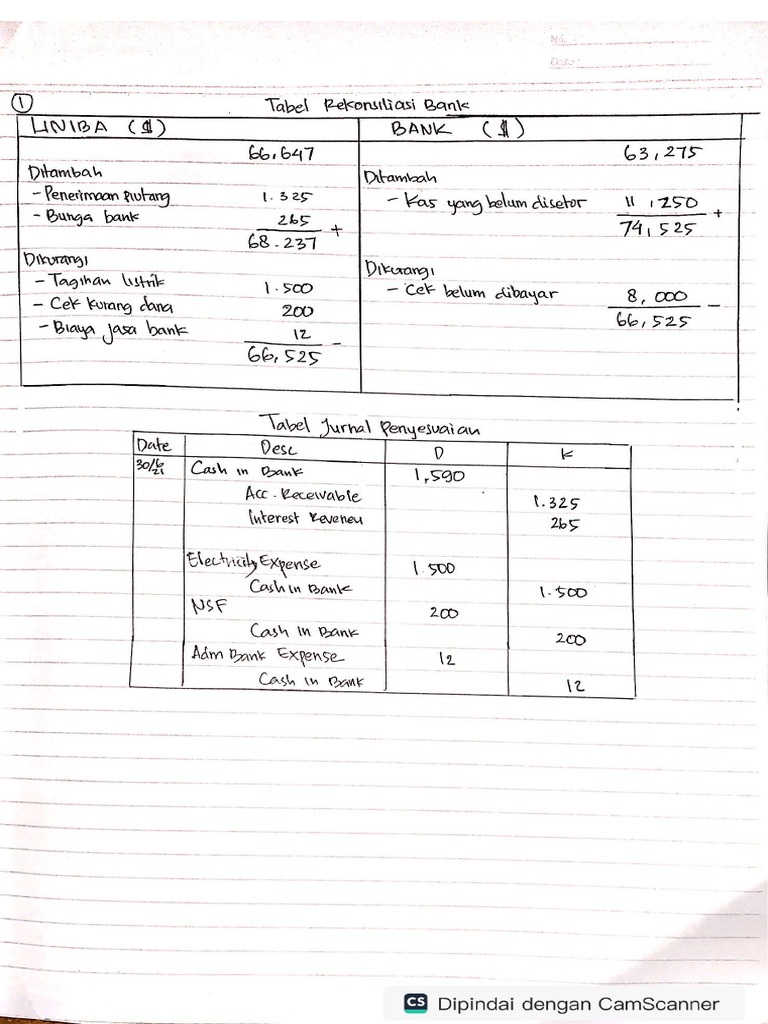 No :
Date :
1 Tabel Rekonsiliasi Bank
UNIBA ($) BANK ($)
66,647 63,275
Ditambah Ditambah
- Penerimaan Piutang 1.325 - Kas yang belum disetor 11,250 +
- Bunga bank 265 + 74,525
68.237
Dikurangi Dikurangi
- Tagihan listrik 1.500 - Cek belum dibayar 8,000 -
- Cek kurang dana 200 66,525
- Biaya jasa bank 12 -
66,525
Tabel Jurnal Penyesuaian
Date Desc D K
30/6 21 Cash in Bank 1,590
Acc. Receivable 1.325
Interest Reveneu 265
Electricity Expense 1.500
Cash in Bank 1.500
NSF 200
Cash in Bank 200
Adm Bank Expense 12
Cash in Bank 12
CS Dipindai dengan CamScanner